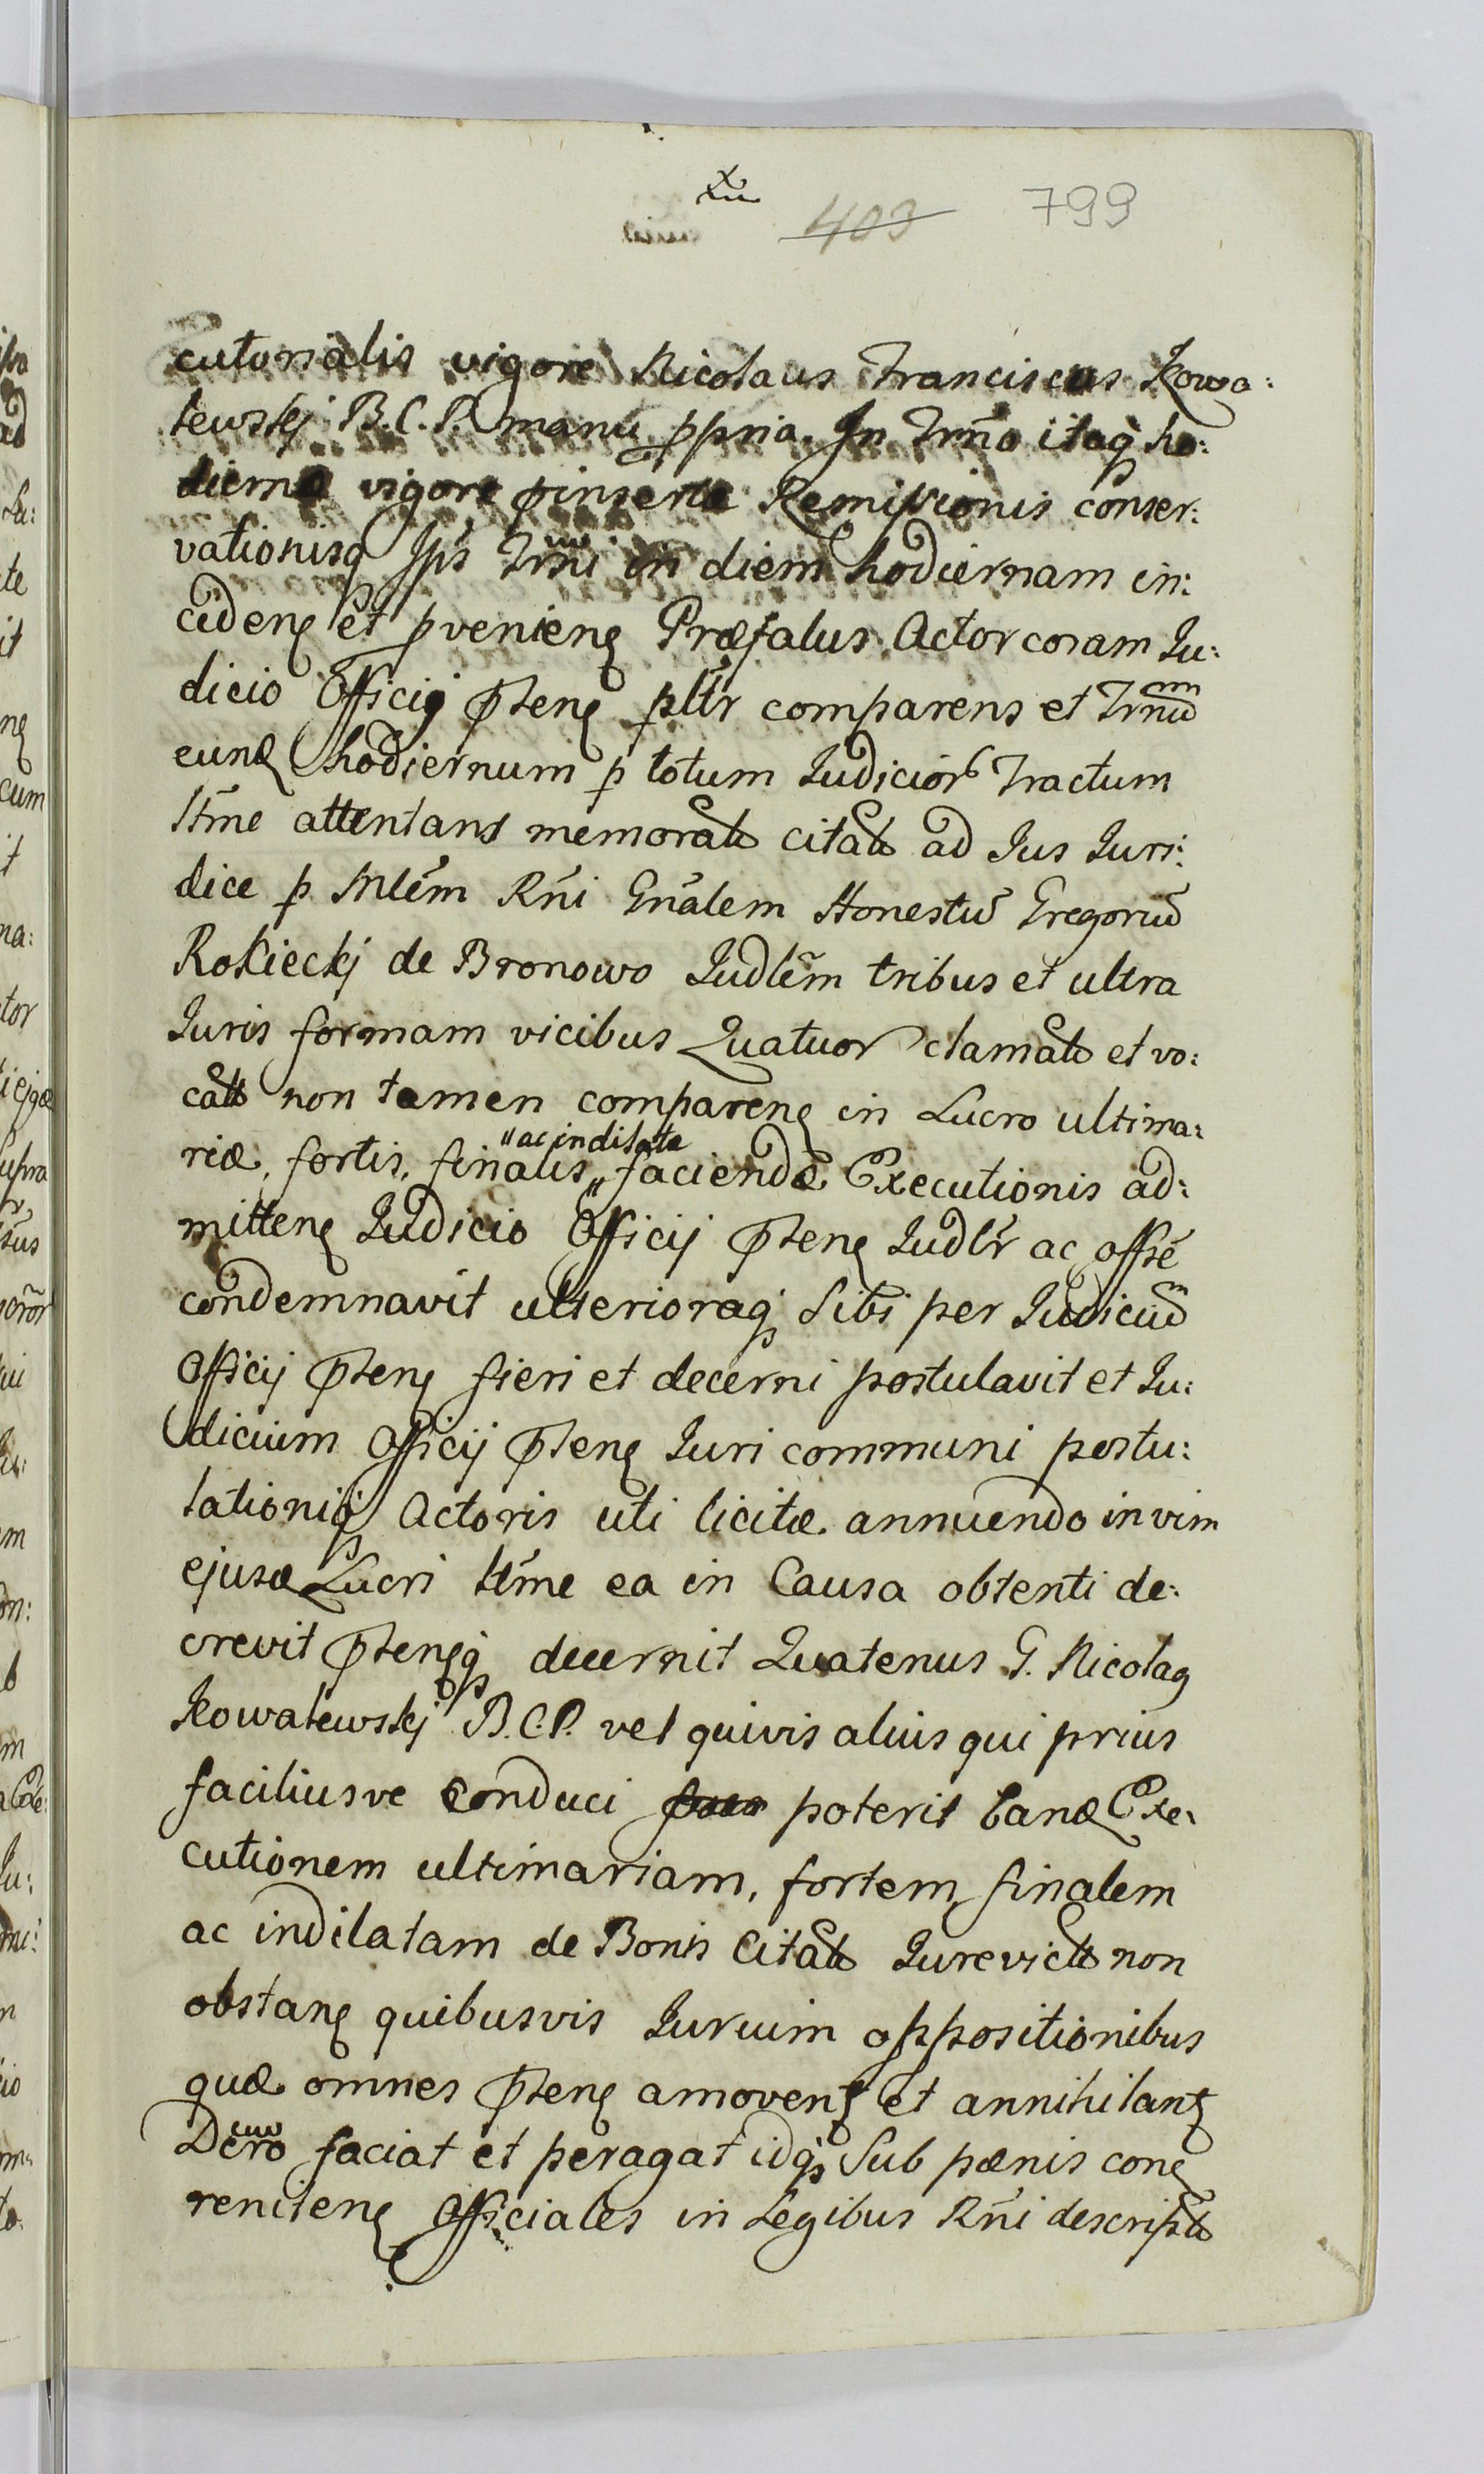 409 799
cutorialis vigore Nicolaus Franciscus Kowa:
lewskj B. C. P. manu ppria. In Trno itaq ho:
dierno vigore pinserta Remissionis conser:
vationisq Ips Trmi in diem hodiernam in:
cideng et pvenieng Præfatus Actor coram Iu:
dicio Officij pteng pltr comparens et Trnu
eund hodiernum p totum Iudicior Tractum
ltme attentans memorato citato ad Ius Iuri:
dice p Mlem Rni Gnalem Honestu Gregoriu
Rokieckj de Bronowo Iudlem tribus et ultra
Iuris formam vicibus Quatuor clamato et vo:
cato non tamen compareng in Lucro ultima:
riæ, fortis, finalis " ac indilatæ faciendæ Executionis ad:
mitteng Iudicio Officij pteng Iudlr ac offse
condemnavit ulterioraq Sibi per Iudiciu
Officij pteng fieri et decerni postulavit et Iu:
dicium Officij pteng Iuri communi postu:
lationiq Actoris uti licitæ annuendo in vim
ejusd Lucri ltme ea in Causa obtenti de:
crevit ptengq decernit Quatenus G. Nicolag
Kowalewskj B. C. P. vel quivis alius qui prius
faciliusve conduci poterit eand Exe:
cutionem ultimariam, fortem finalem
ac indilatam de Bonis Citato Iurevicto non
obstang quibusvis Iurium oppositionibus
quæ omnes pteng amoveng et annihilang
Dero faciat et peragat idq Sub pænis cong
reniteng Officiales in Legibus Rni descripto